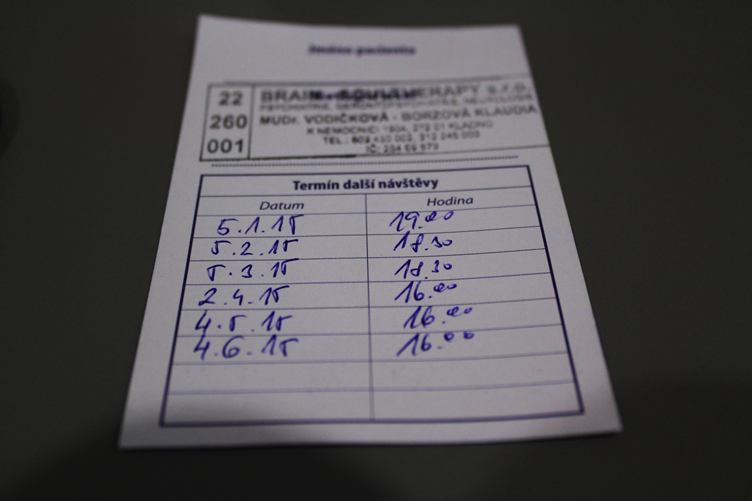 Jméno pacienta
22 260 001
BRAIN - SOULTHERAPY s.r.o.
PSYCHIATRIE, GERONTOPSYCHIATRIE, NEUROLOGIE
MUDr. VODIČKOVÁ - BORZOVÁ KLAUDIA
K NEMOCNICI 272 01 KLADNO
TEL.: 312 245 003
IČ:
Termín další návštěvy
Datum Hodina
5.1.15 19.00
5.2.15 18.30
5.3.15 18.30
2.4.15 16.00
4.5.15 16.00
4.6.15 16.00